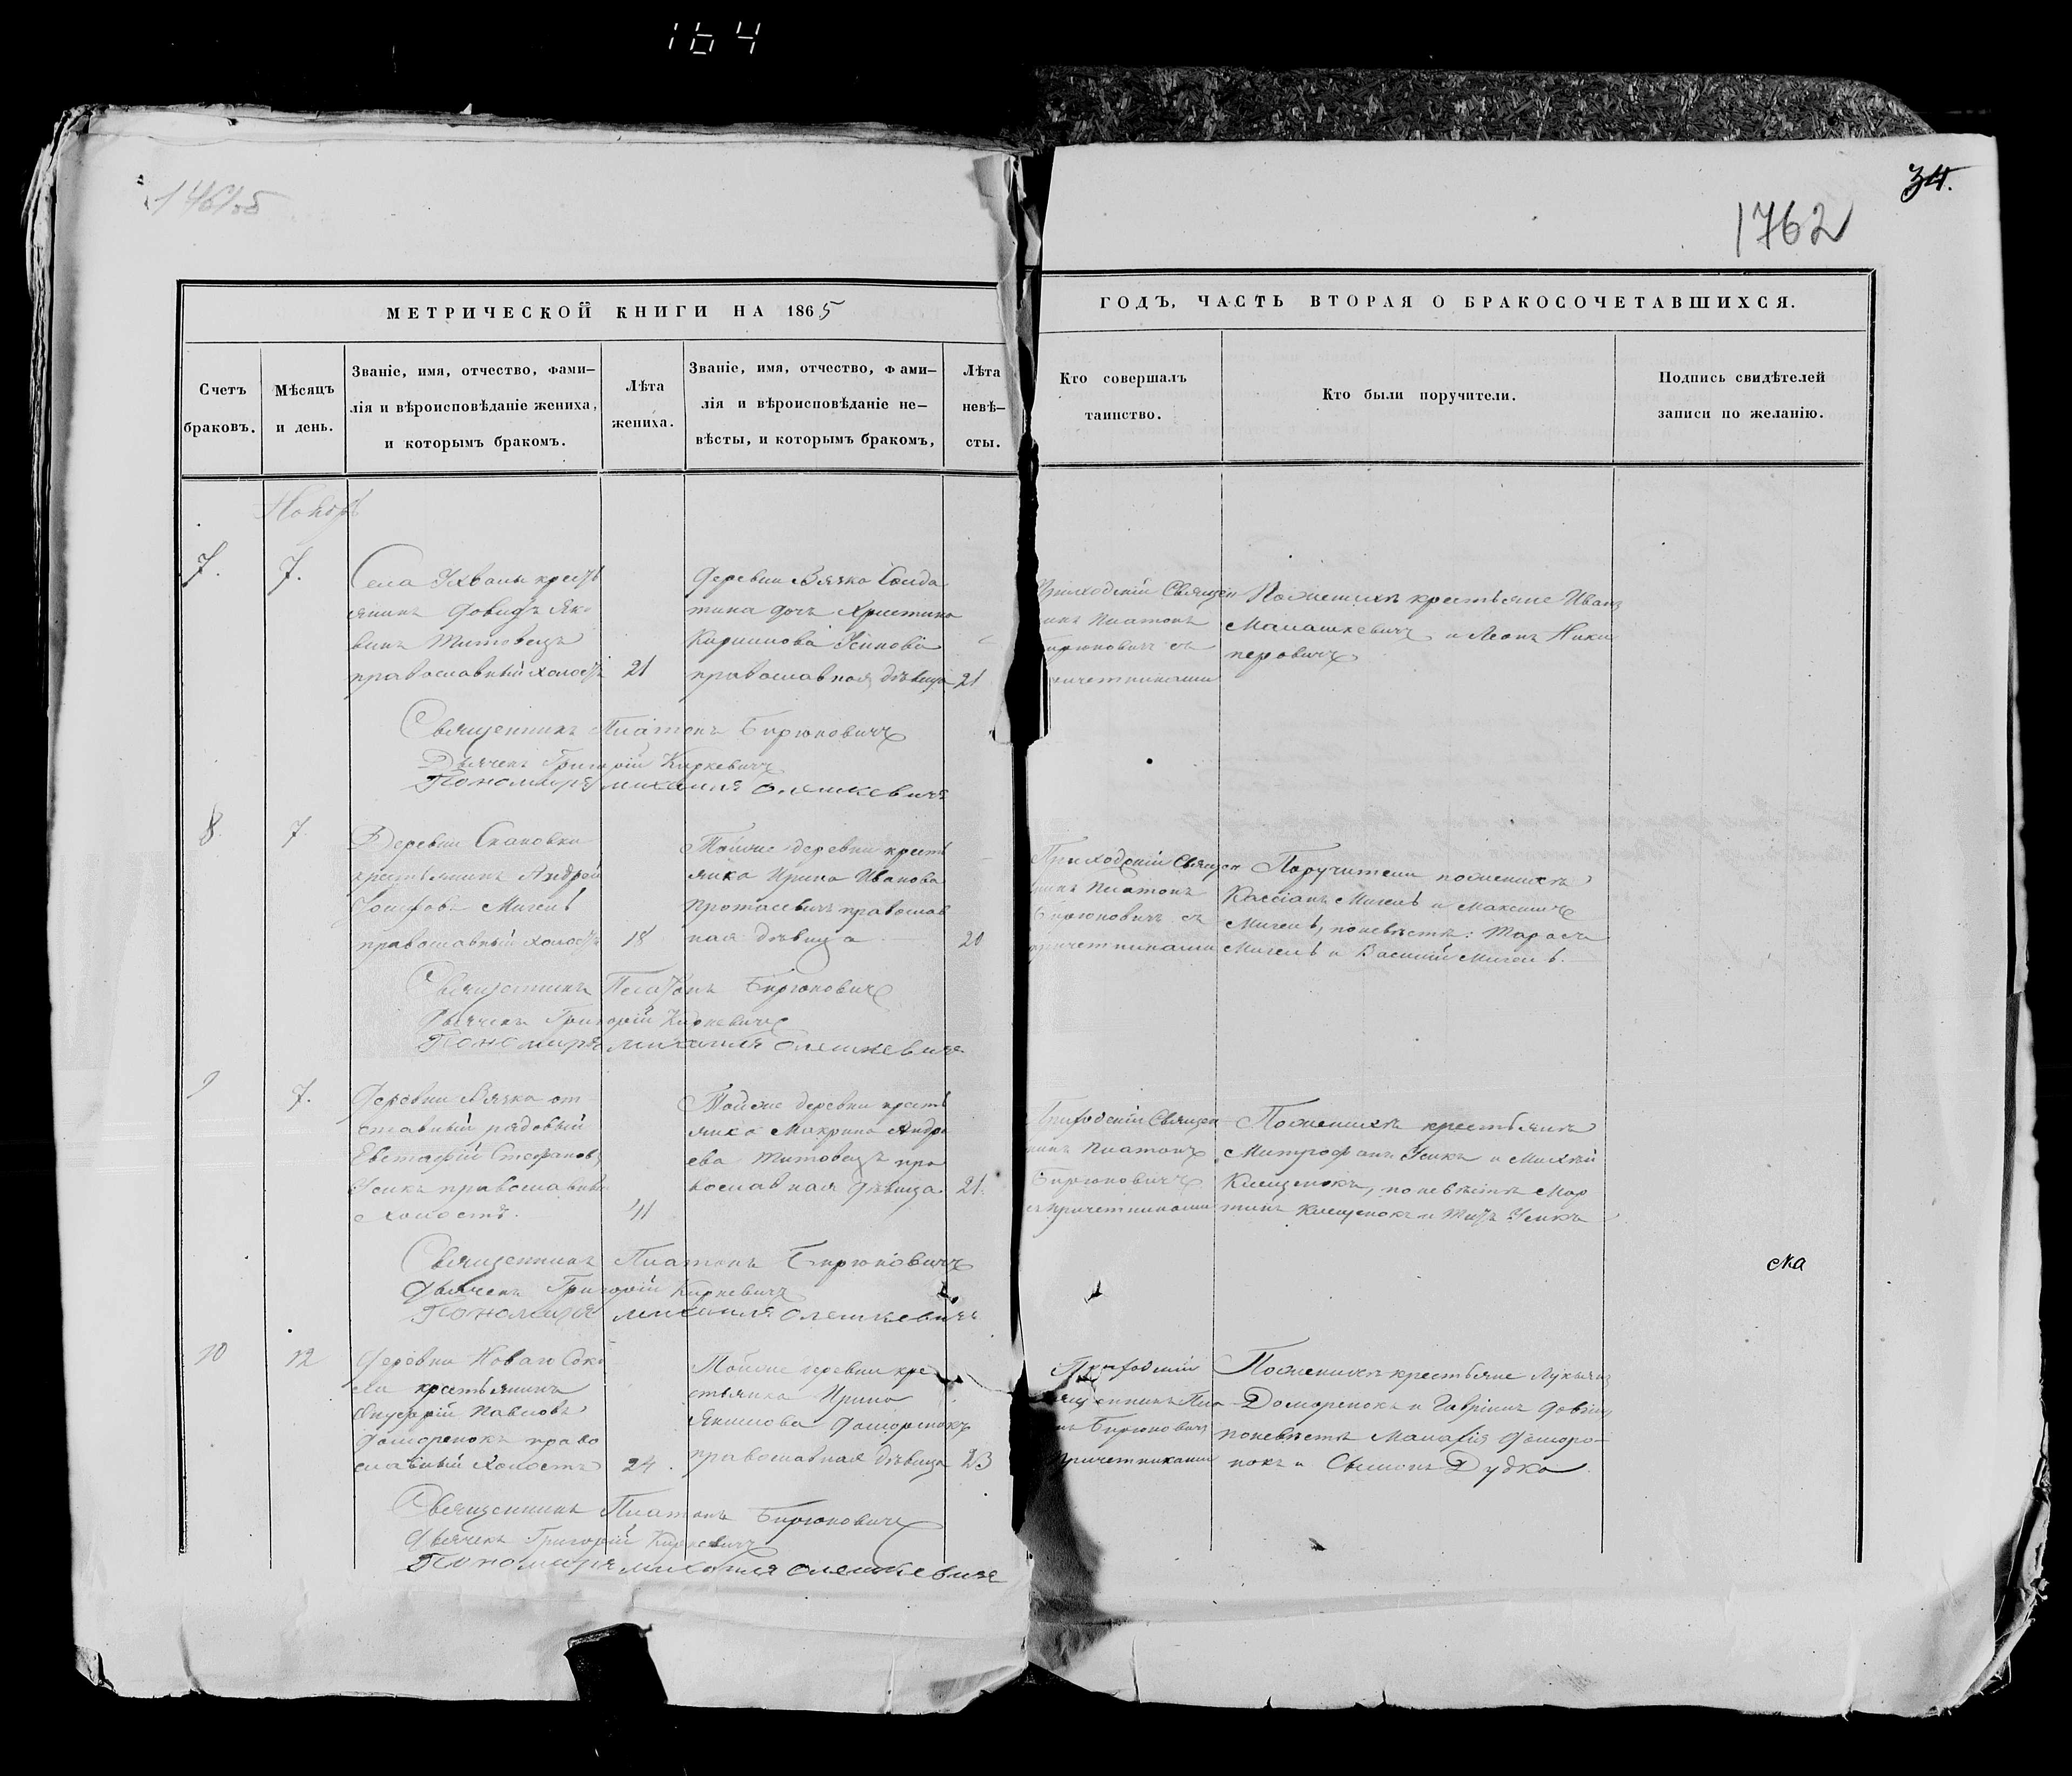 164
34.
1762
МЕТРИЧЕСКОЙ КНИГИ НА 1865
ГОДЪ, ЧАСТЬ ВТОРАЯ О БРАКОСОЧЕТАВШИХСЯ.
Счетъ браковъ.
Мѣсяцъ и день.
Званіе, имя, отчество, фами–
лія и вѣроисповѣданіе жениха,
и которымъ бракомъ.
Лѣта
жениха.
Званіе, имя, отчество, фами–
лія и вѣроисповѣданіе не–
вѣсты, и которымъ бракомъ,
Лѣта
невѣ–
сты.
Кто совершалъ
таинство.
Кто были поручители.
Подпись свидѣтелей
записи по желанію.
7.
7.
Села Ухвалы кресть
янинъ Довидъ Яко
витъ Титовецъ
православный холостъ
21
Деревни Вязка Солда
тина дочь Христина
Кирилова Усикова
православная дѣвица
21
Приходскій Священ
никъ Платонъ
Бирюковичъ съ
причетниками
По женихѣ крестьяне Иванъ
Малашкевичъ и Леонъ Ники
перовичъ
Священникъ Платонъ Бирюковичъ
Дьячекъ Григорій Киркевичъ
Пономаръ Михаилъ Олешкевичъ
8
7
Деревни
крестьянинъ Андрей
Іосифовъ
православный холостъ
18
Тойже деревни кресть
янка Ирина Иванова
Протасевичъ православ
ная дѣвица
20
Приходскій Священ
никъ Платонъ
Бирюковичъ съ
причетниками
Поручители по женихѣ
Кассіанъ и Максимъ
по невѣстѣ: Тарасъ
и Василій
Священникъ Платонъ Бирюковичъ
Дьячекъ Григорій Киркевичъ
Пономаръ Михаилъ Олешкевичъ
9
7.
Деревни Вязка от
ставный рядовый
Евстафій Стефановъ
Усикъ православный
холостъ.
41
Тойже деревни кресть
янка Макрина Андре
ева Титовецъ пра
вославная дѣвица
21.
Приходскій Священ
никъ Платонъ
Бирюковичъ
съ причетниками
По женихѣ крестьяне
Митрофанъ Усикъ и Михѣй
Клещенокъ, по невѣстѣ Мар
тинъ Клещенокъ и Титъ Усикъ
Священникъ Платонъ Бирюковичъ
Дьячекъ Григорій Киркевичъ
Пономаръ Михаилъ Олешкевичъ
10
12
Деревни Новаго Соко
ла крестьянинъ
Онуфрій Павловъ
Доморенокъ право
славный холостъ
24.
Тойже деревни кре
стьянка Ирина
Якимова Доморенокъ
православная дѣвица
23
Приходскій
Священникъ Пла
тонъ Бирюковичъ
причетниками
По женихѣ крестьяне Лукьянъ
Доморенокъ и Гавріилъ
по невѣстѣ Малафій Доморе–
нокъ и Семіонъ Дудка.
Священникъ Платонъ Бирюковичъ
Дьячекъ Григорій Киркевичъ
Пономаръ Михаилъ Олешкевичъ